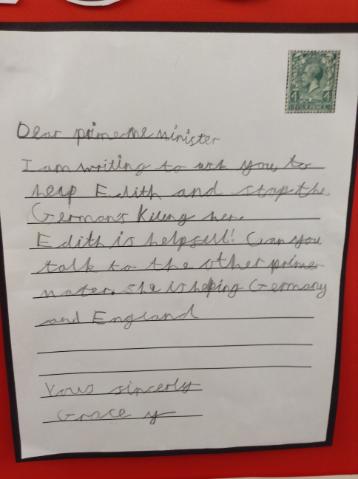 Dear prime minister
I am writing to ask you to
help Edith and stop the
Germans kiling her.
Edith is helpfull! Can you
talk to the other prime
nater. she is heping Germany
and England
Yous sincerly
Grace y